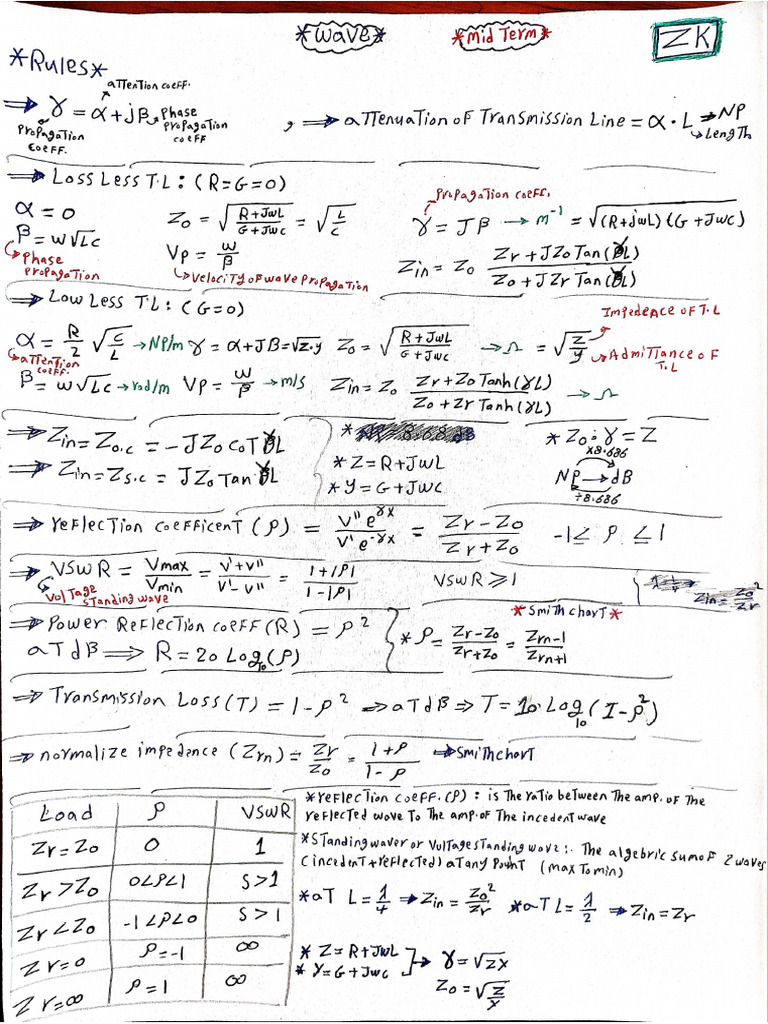 *wave* *mid Term* ZK
*Rules*
aTTenTion coeff.
⇒ γ = α + jβ Phase propagation coeff
propagation coeff.
, ⇒ aTTenuaTion of Transmission Line = α . L → NP
→ Length
⇒ Loss Less T.L : (R=G=0)
α = 0
Zo = √(R+JwL / G+Jwc) = √(L/C)
propagaTion coeff.
γ = Jβ → m⁻¹ = √(R+jwL)(G+Jwc)
β = w√Lc
phase propagation
Vp = w/β
velociTy of wave propagation
Zin = Zo (Zr + JZo Tan(βL) / Zo + JZr Tan(βL))
⇒ Low Less T.L : (G=0)
α = R/2 √(C/L) → NP/m γ = α + Jβ = √z.y Zo = √(R+JwL / G+Jwc) → Ω = √(Z/y)
aTTenTion coeff.
Impedence of T.L
AdmiTTance of T.L
β = w√Lc → rad/m Vp = w/β → m/s Zin = Zo (Zr + Zo Tanh(γL) / Zo + Zr Tanh(γL)) → Ω
⇒ Zin = Zo.c = -JZo coT βL
⇒ Zin = Zs.c = JZo Tan βL
* Z = R+JwL
* Y = G+Jwc
* Zo . γ = Z
×8.686
NP → dB
÷8.686
⇒ reflecTion coefficenT (ρ) = V'' e^γx / V' e^-γx = Zr - Zo / Zr + Zo -1 ≤ ρ ≤ 1
⇒ VSWR = Vmax / Vmin = V'+V'' / V'-V'' = 1+|ρ| / 1-|ρ| VSWR ≥ 1
VolTage STanding wave
Zin = Zo² / Zr
⇒ Power ReflecTion coeff (R) = ρ²
aT dB ⇒ R = 20 Log₁₀(ρ)
*SmiTh charT*
* ρ = Zr-Zo / Zr+Zo = Zrn-1 / Zrn+1
⇒ Transmission Loss(T) = 1-ρ² ⇒ aT dB ⇒ T = 10.Log₁₀(1-ρ²)
⇒ normalize impedence (Zrn) = Zr / Zo = 1+ρ / 1-ρ ⇒ SmiThcharT
Load ρ VSWR
Zr = Zo 0 1
Zr > Zo 0<ρ<1 S>1
Zr < Zo -1<ρ<0 S>1
Zr = 0 ρ=-1 ∞
Zr = ∞ ρ=1 ∞
*reflecTion coeff.(ρ) : is The raTio beTween The amp. of The
reflecTed wave To The amp. of The incedenT wave
*STanding waver or VolTage sTanding wave :. The algebric sum of 2 waves
(incedenT+reflecTed) aT any PoinT (max To min)
*aT L = λ/4 ⇒ Zin = Zo² / Zr *aT L = λ/2 ⇒ Zin = Zr
* Z = R+JwL
* Y = G+Jwc
→ γ = √ZY
Zo = √(Z/Y)